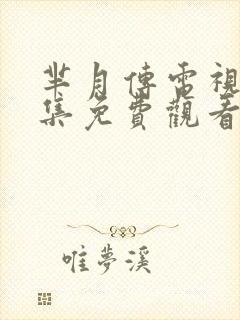 芈月傳電視
集免費觀看
唯夢溪